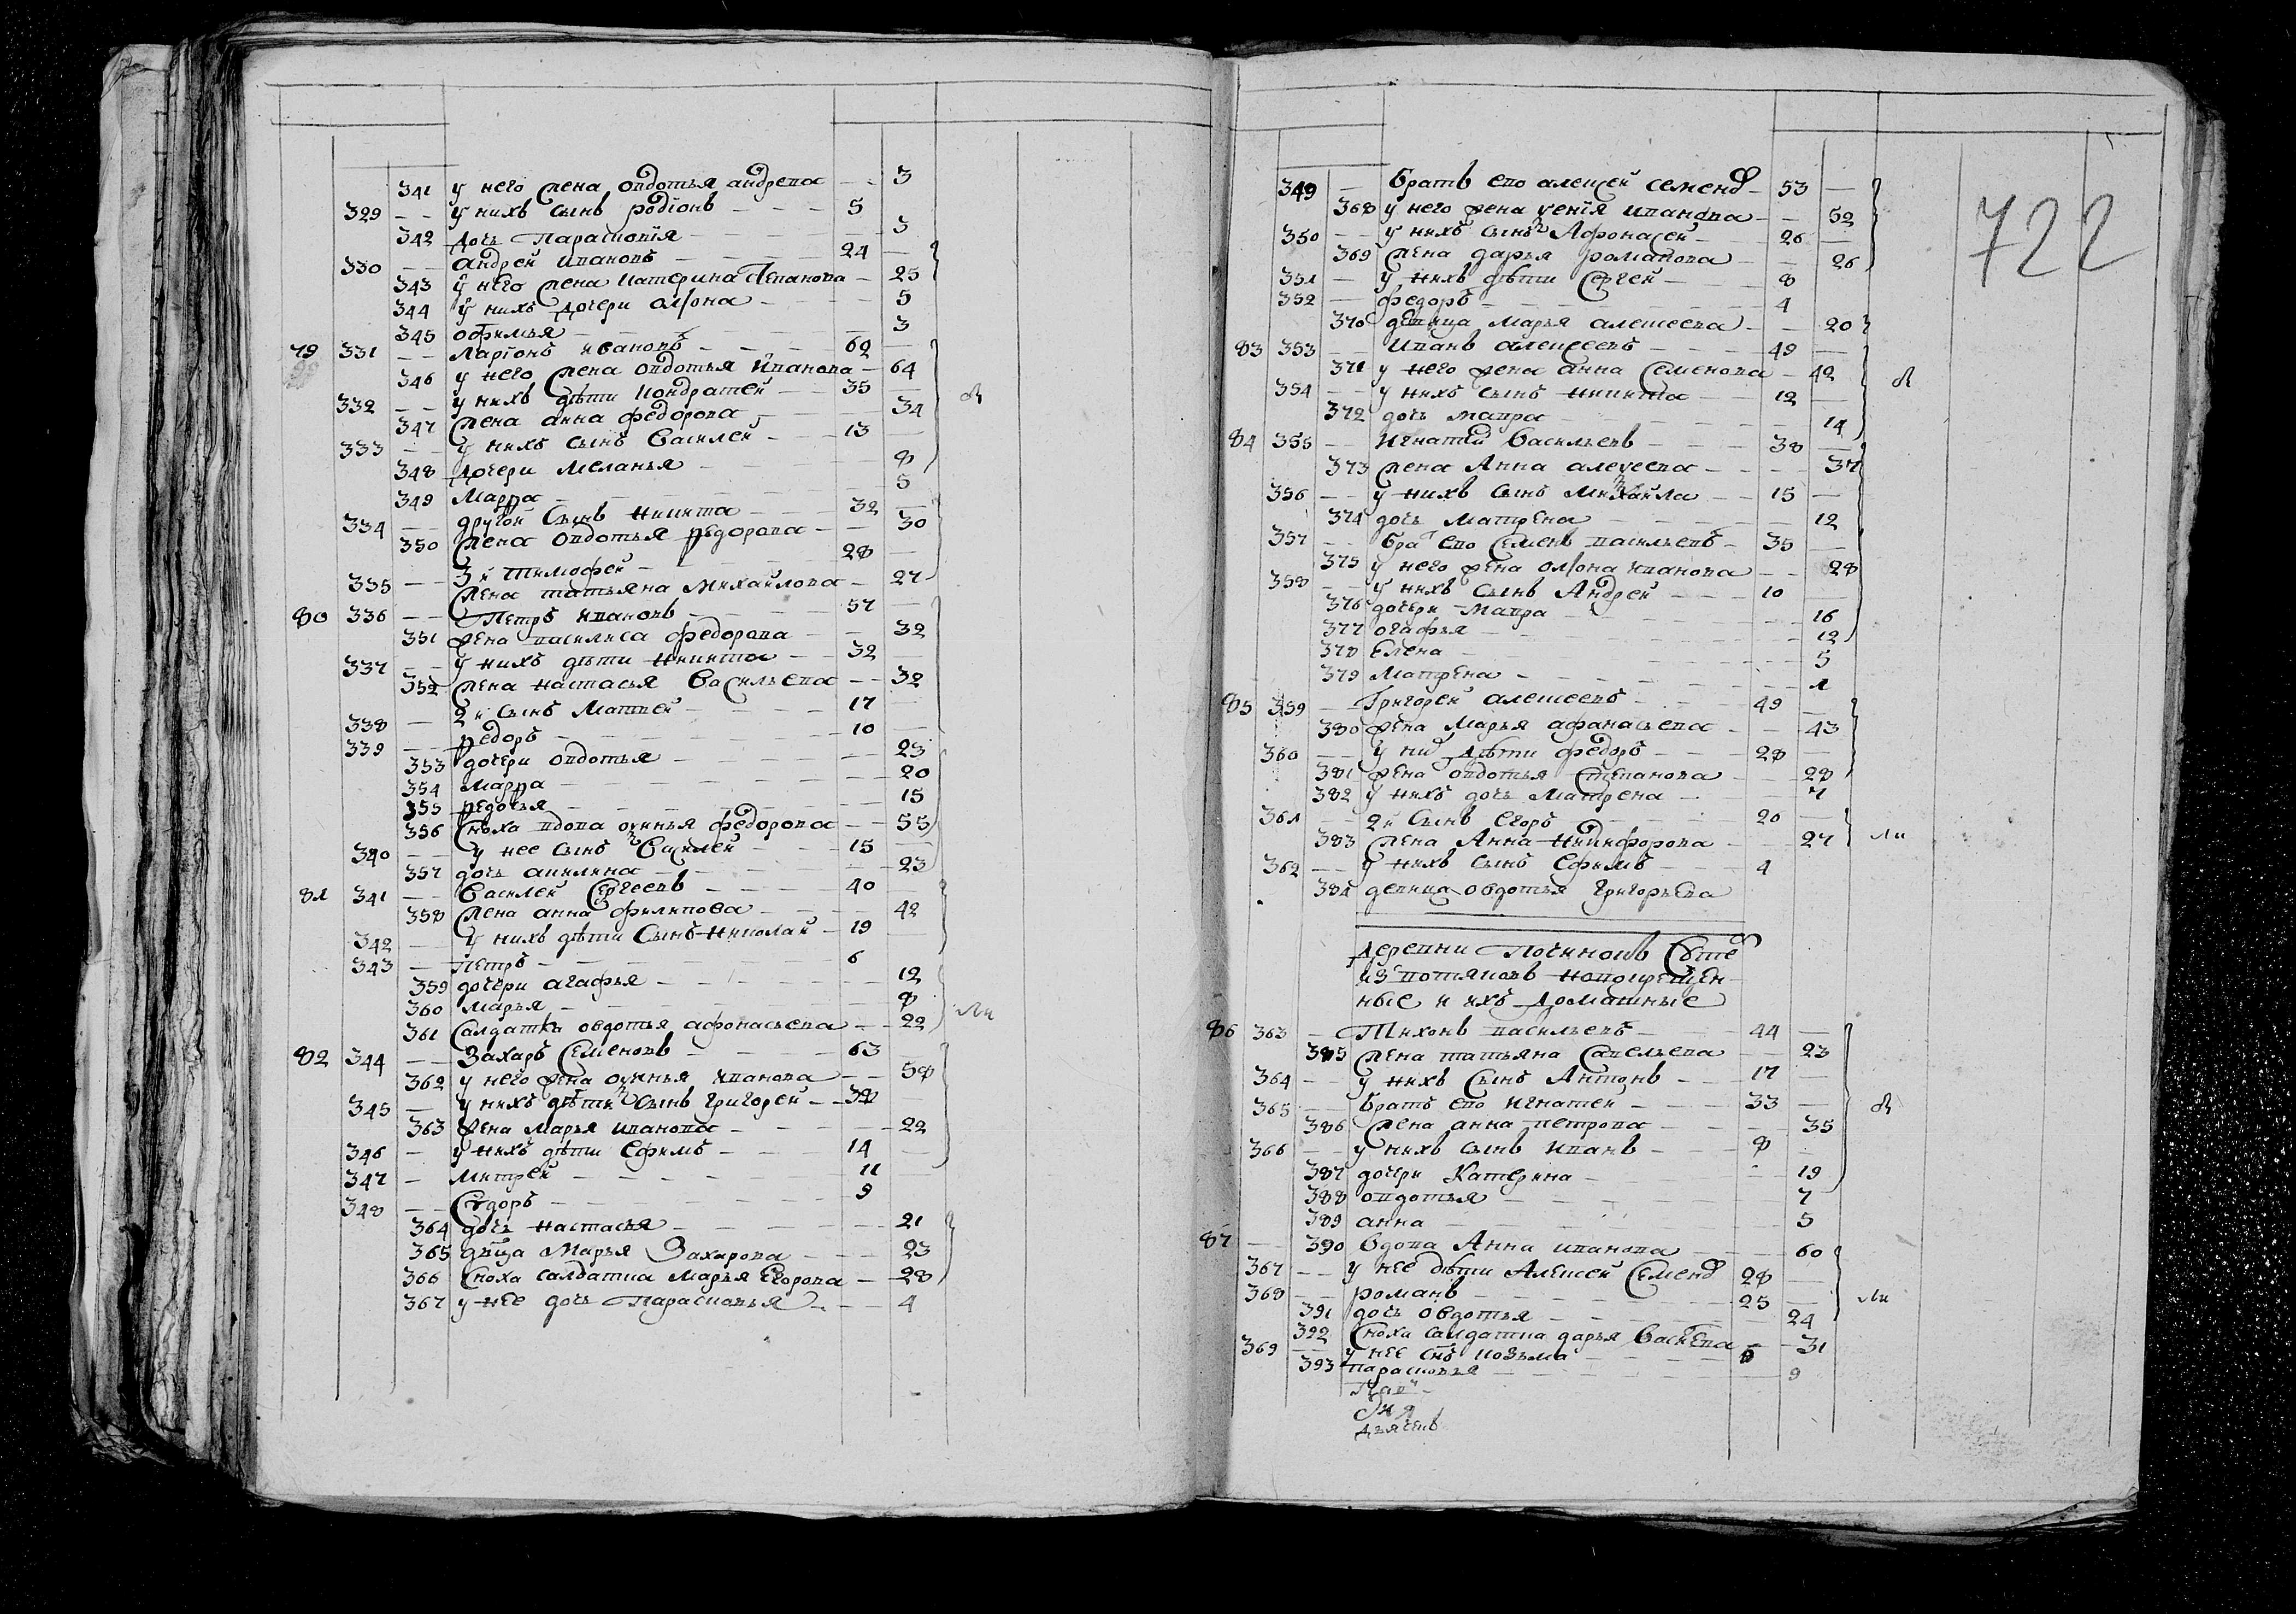 341 у него жена овдотья андреева — 3
329 — у нихъ сынъ родїонъ — 5
342 дочь Парасковїя — 3
330 — андрей ивановъ — 24
343 у него жена катерина степанова — 25
344 у нихъ дочери алїона — 5
345 офимья — 3
79 331 — ларїонъ ивановъ — 62
346 у него жена овдотья иванова — 64
332 — у нихъ дѣти кондратей — 35
347 жена анна федорова — 34
333 — у нихъ сынъ василей — 13
348 дочери меланья — 8
349 марѳа — 5
334 — другой сынъ никита — 32
350 жена овдотья ѳедорова — 30
335 — 3й тимофей — 28
жена татьяна михайлова — 27
80 336 — Петръ ивановъ — 57
351 жена василиса федорова — 32
337 — у нихъ дѣти никита — 32
352 жена настасья васильева — 32
338 — 2й сынъ матвей — 17
339 — ѳедоръ — 10
353 дочери овдотья — 23
354 марѳа — 20
355 ѳедосья — 15
356 сноха вдова оксинья федорова — 55
340 — у нее сынъ василей — 15
357 дочь акилина — 23
81 341 — василей сергеевъ — 40
358 жена анна филипова — 42
342 — у нихъ дѣти сынъ николай — 19
343 — петръ — 6
359 дочери агафья — 12
360 марья — 8
361 салдатка овдотья афонасьева — 22
ли
82 344 — захаръ семеновъ — 63
362 у него жена оксинья иванова — 58
345 — у нихъ дѣти сынъ григорей — 32
363 жена марья иванова — 22
346 — у нихъ дѣти ефимъ — 14
347 — митрей — 11
348 — сидоръ — 9
364 дочь настасья — 21
365 двца марья захарова — 23
366 сноха салдатка марья егорова — 28
367 у нее дочь парасковья — 4
722
349 — братъ ево алексей семенов — 53
368 у него жена ксенїя иванова — 52
350 — у нихъ сынъ Афонасей — 26
369 жена дарья романова — 26
351 — у нихъ дѣти сергей — 8
352 — федоръ — 4
370 девица марья алексеева — 20
83 353 — иванъ алексеевъ — 49
371 у него жена анна семенова — 42
354 — у нихъ сынъ никита — 12
372 дочь мавра — 14
84 355 — игнатей васильевъ — 38
373 жена анна алексеева — 37
356 — у нихъ сынъ михайла — 15
374 дочь матрена — 12
357 — братъ ево семенъ васильевъ — 35
375 у него жена алїона иванова — 28
358 — у нихъ сынъ Андрей — 10
376 дочери мавра — 16
377 огафья — 12
378 елена — 5
379 матрена — 1
85 359 — григорей алексеевъ — 49
380 жена марья афанасьева — 43
360 — у них дѣти федоръ — 28
381 жена овдотья степанова — 28
382 у нихъ дочь матрена — 7
361 — 2й сынъ егоръ — 20
383 жена анна никифорова — 27
ли
362 — у нихъ сынъ ефимъ — 4
384 девица овдотья григорьева
деревни Починокъ
из вотяковъ новокрещен-
ные и ихъ домашные
86 363 — Тихонъ васильевъ — 44
385 жена татьяна савельева — 23
364 — у нихъ сынъ Антонъ — 17
365 — братъ ево игнатей — 33
386 жена анна петрова — 35
366 — у нихъ сынъ иванъ — 8
387 дочери катерина — 19
388 овдотья — 7
389 анна — 5
87 — 390 вдова Анна иванова — 60
367 — у нее дѣти Алексей семенов — 28
368 — романъ — 25
ли
391 дочь овдотья — 24
392 сноха салдатка дарья васильева — 31
369 — у нее снъ козьма
393 парасковья — 9
дьячекъ